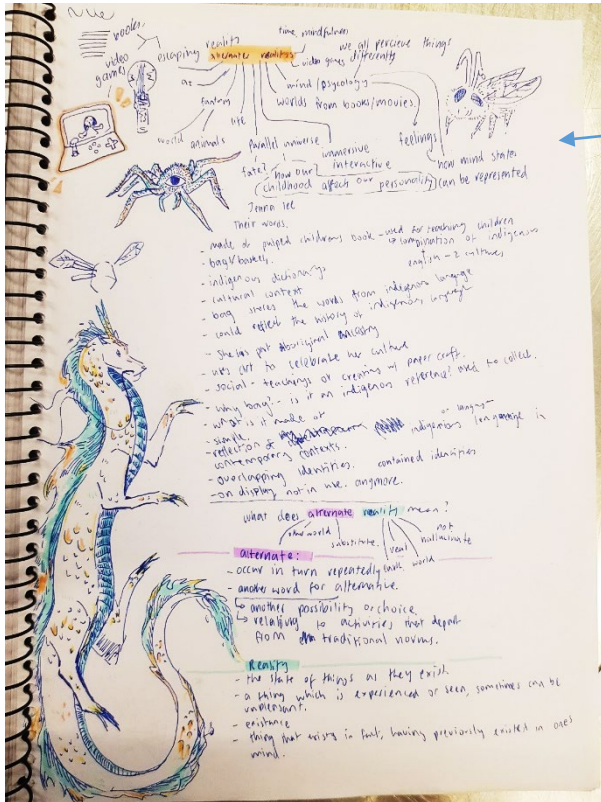 books.
video games
escaping reality
time, mindfulness
alternate realitys
we all percieve things differently
video games
art
mind/psycology
fantasy
worlds from books/movies.
world
animals
life
Parallel universe
immersive
interactive
feelings
fate?
how our
childhood affect our personality
how mind states
can be represented
Jenna lee
Their words.
- made of pulped childrens book - used for teaching children
- bag/baskets.
combination of indigenous
english - 2 cultures
- indigenous dictionary
- cultural context
- bag stores the words from indigenous language
- could reflect the history of indigenous language
- She has part Aboriginal ancestry
- uses art to celebrate her culture
- social - teachings of creating of paper craft.
- why bag? - is it an indigenous reference? used to collect.
- what is it made of
- simple.
- reflection of indigenous language in
contemporary contexts.
- overlapping identities. contained identities
- on display not in use anymore.
what does alternate reality mean?
other world
substitute.
real
world
not
hallucinate
alternate:
- occur in turn repeatedly
- another word for alternative.
another possibility or choice.
relating to activities that depart
from traditional norms.
Reality
- the state of things as they exist
- a thing which is experienced or seen, sometimes can be
unpleasant.
- existance
- thing that exists in fact, having previously existed in ones
mind.